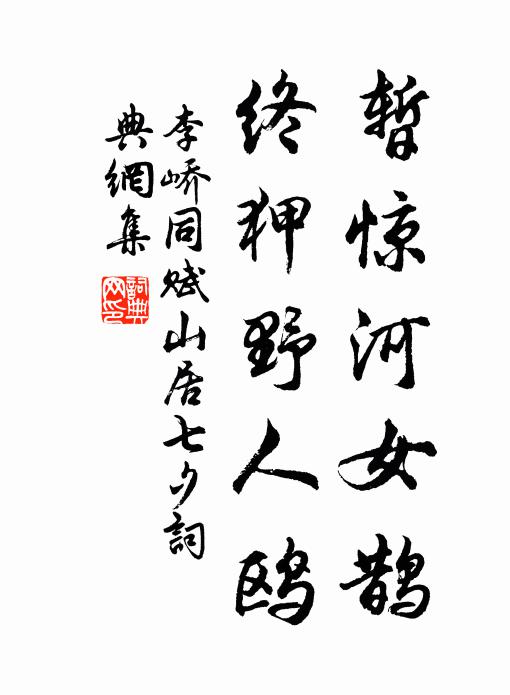 暂惊河女鹊
终狎野人鸥
李峤同赋山居七夕詞
典網集
詞典网印